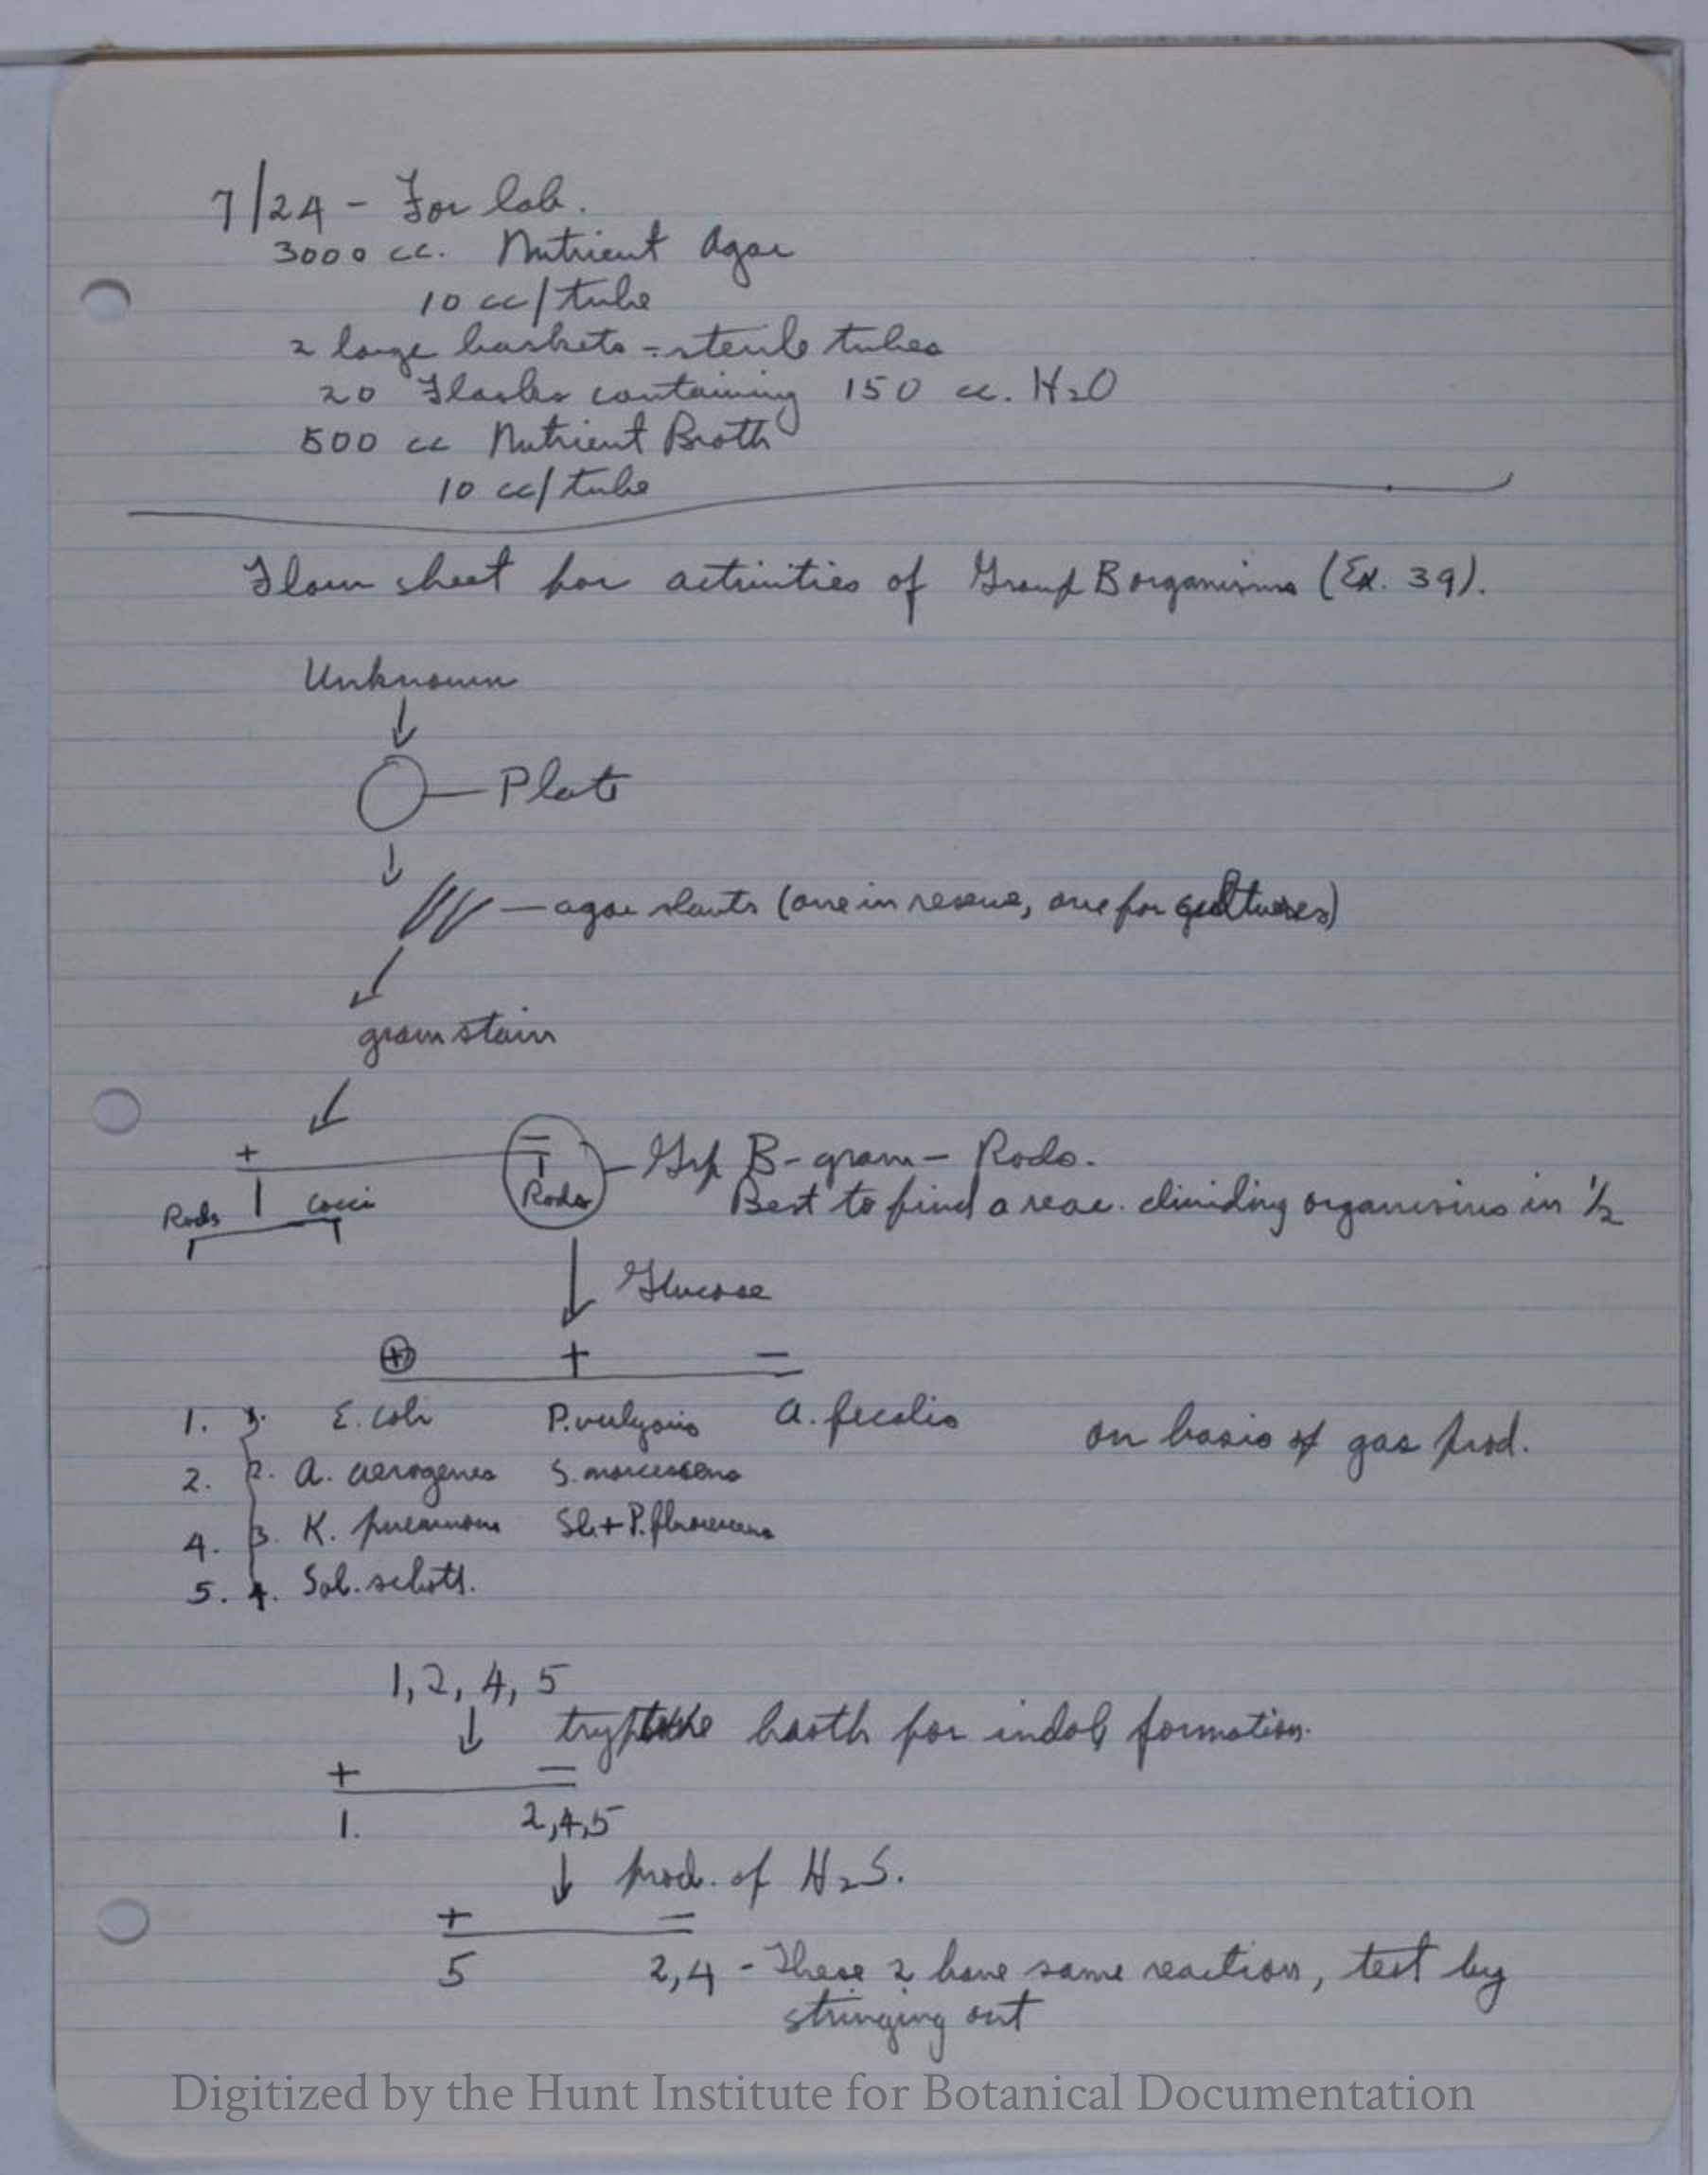 7/24 - For lab.
3000 cc. Nutrient Agar
10 cc/tube
2 large baskets - sterile tubes
20 Flasks containing 150 cc. H2O
500 cc Nutrient Broth
10 cc/tube
Flow sheet for activities of Group B organisms (Ex. 39).
Unknown
Plate
agar slants (one in reserve, one for cultures)
gram stain
+ −
Rods Cocci Rods
Grp B - gram - Rods.
Best to find a reac. dividing organisms in 1/2
Glucose
⊕ + −
1. 1. E. coli P. vulgaris A. fecalis on basis of gas prod.
2. 2. A. aerogenes S. marcescens
4. 3. K. pneumon + P. fluorescens
5. 4. Sal. schott.
1, 2, 4, 5
broth for indol formation.
+ −
1. 2,4,5
prod. of H2S.
+ −
5 2,4 - These 2 have same reaction, test by
stringing out
Digitized by the Hunt Institute for Botanical Documentation